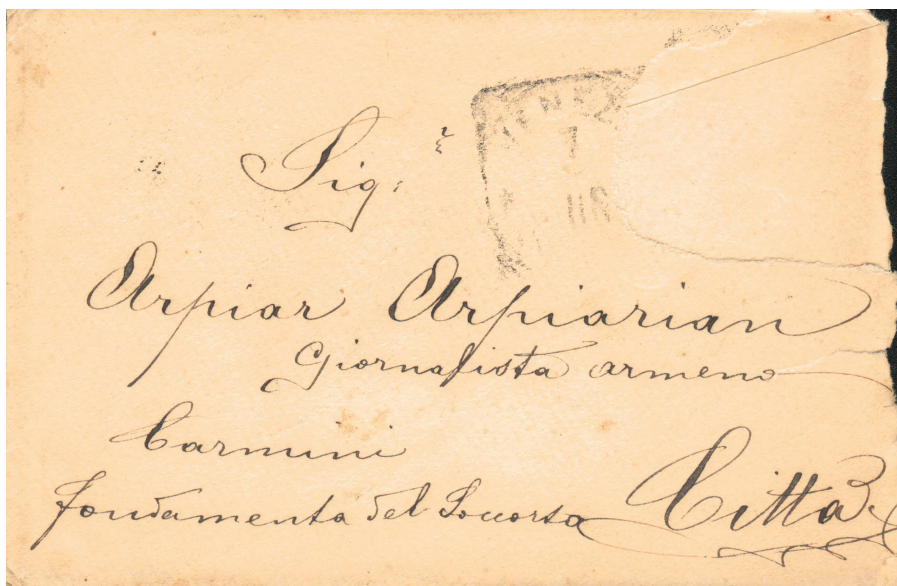 VENEZ
7
Sig:r
Arpiar Arpiarian
Giornalista armeno
Carmini
fondamenta del Soccorso Città